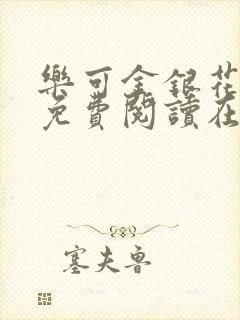 樂可金銀花
免費閱讀在
塞夫魯